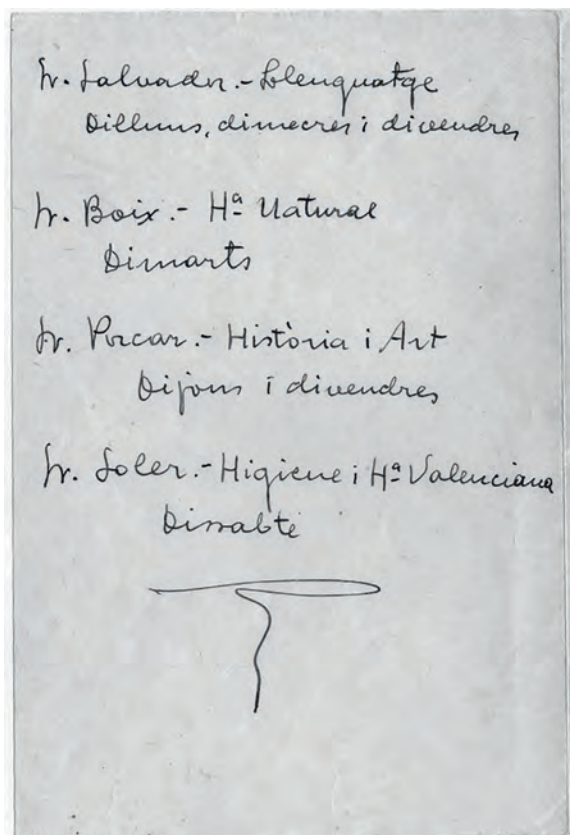 Sr. Salvador.- Llenguatge
Dilluns, dimecres i divendres
Sr. Boix.- Hª Natural
Dimarts
Sr. Porcar.- Història i Art
Dijous i divendres
Sr. Soler.- Higiene i Hª Valenciana
Dissabte